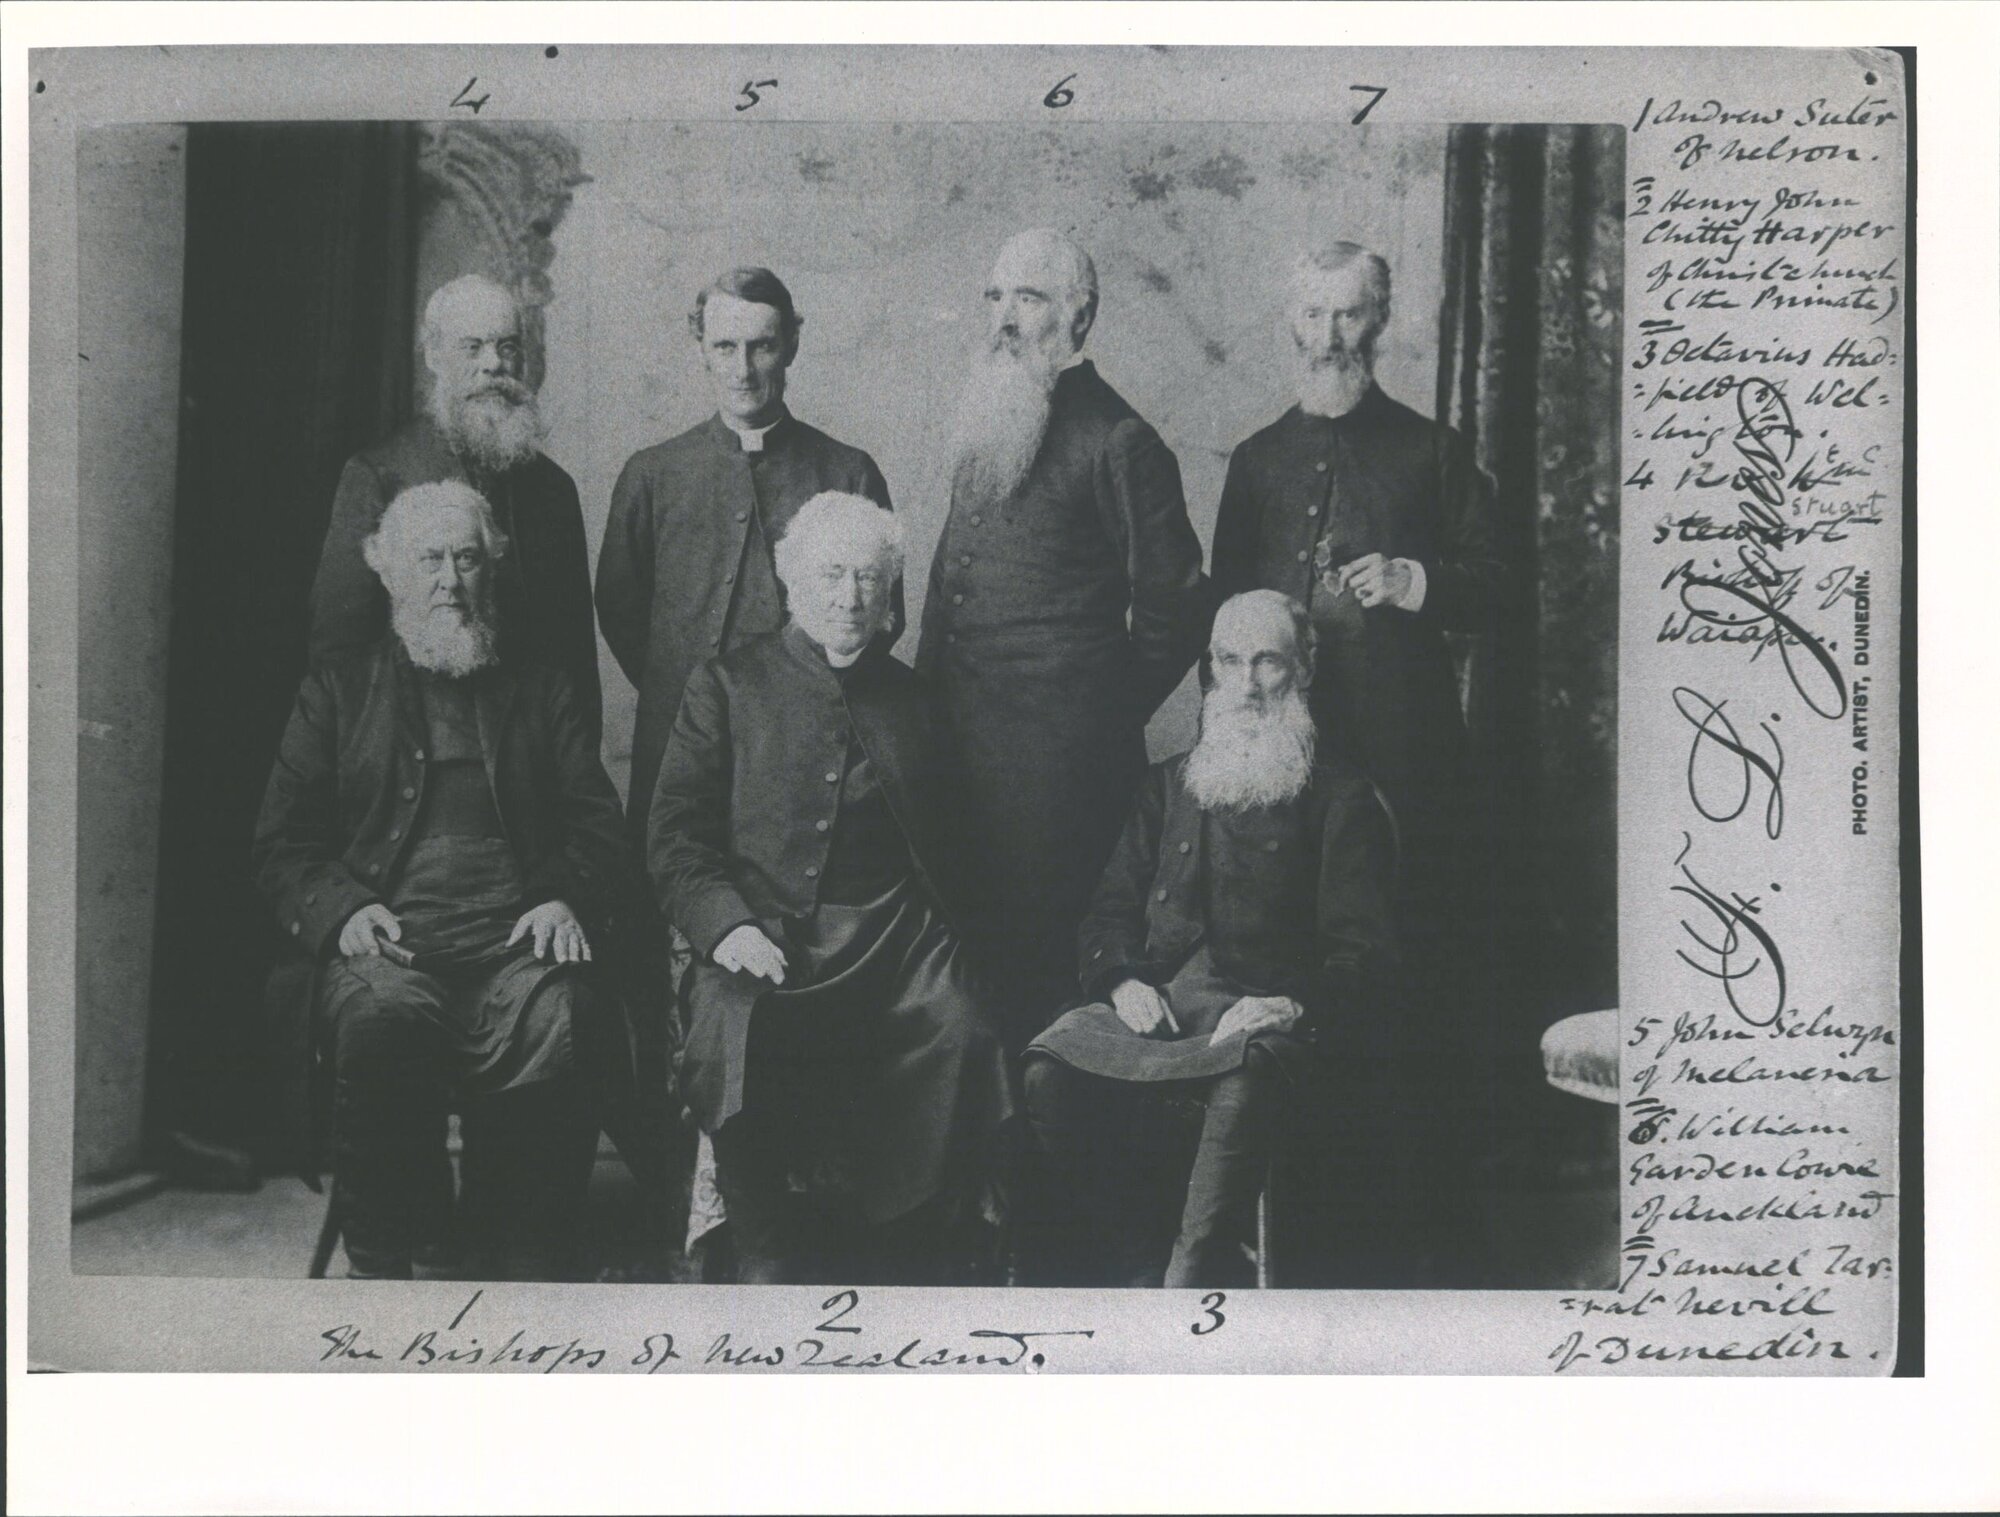 4 5 6 7
1 Andrew Suter
of Nelson.
2 Henry John
Chitty Harper
of Christchurch
(the Primate)
3 Octavius Had=
=field of Wel=
=lington.
4
Stuart
Stewart
Bishop of
Waiapu.
F. L. Jones
PHOTO. ARTIST, DUNEDIN.
5 John Selwyn
of Melanesia
6. William
Garden Cowie
of Auckland
7 Samuel Tar=
=rat Nevill
of Dunedin.
1 2 3
The Bishops of New Zealand.